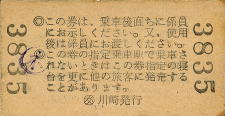 3835
◎この券は、乗車後直ちに係員
にお示しください。又、使用
後は係員にお渡しください。
◎この券の指定乗車駅で乗車さ
れないときはこの券の指定の寝
台を更に他の旅客に発売する
ことがあります。
川崎発行
3835